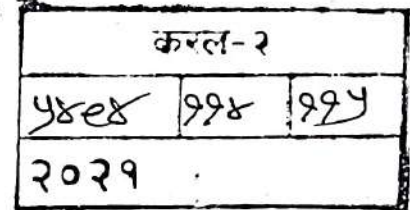 करल-२
५४९४ ११४ ११५
२०२१